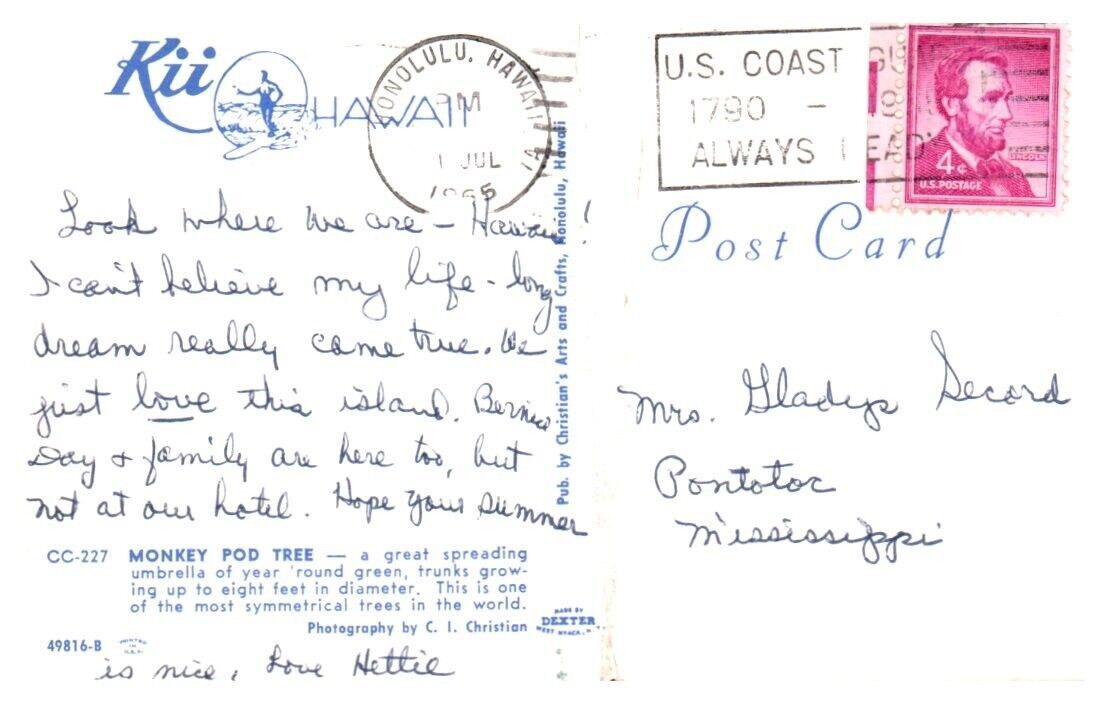 Kii
HAWAII
HONOLULU, HAWAII
PM
1 JUL
1965
U.S. COAST GU
1790 - 19
ALWAYS READY
4¢
LINCOLN
U.S. POSTAGE
Post Card
Look where we are - Hawaii!
I can't believe my life-long
dream really came true. We
just love this island. Bernice
Day & family are here too, but
not at our hotel. Hope your summer
CC-227 MONKEY POD TREE — a great spreading
umbrella of year 'round green, trunks grow-
ing up to eight feet in diameter. This is one
of the most symmetrical trees in the world.
Photography by C. I. Christian
49816-B
PRINTED
IN
U.S.A.
MADE BY
DEXTER
WEST NYACK, N.Y.
is nice. Love Hettie
Pub. by Christian's Arts and Crafts, Honolulu, Hawaii
Mrs. Gladys Secord
Pontotoc
Mississippi